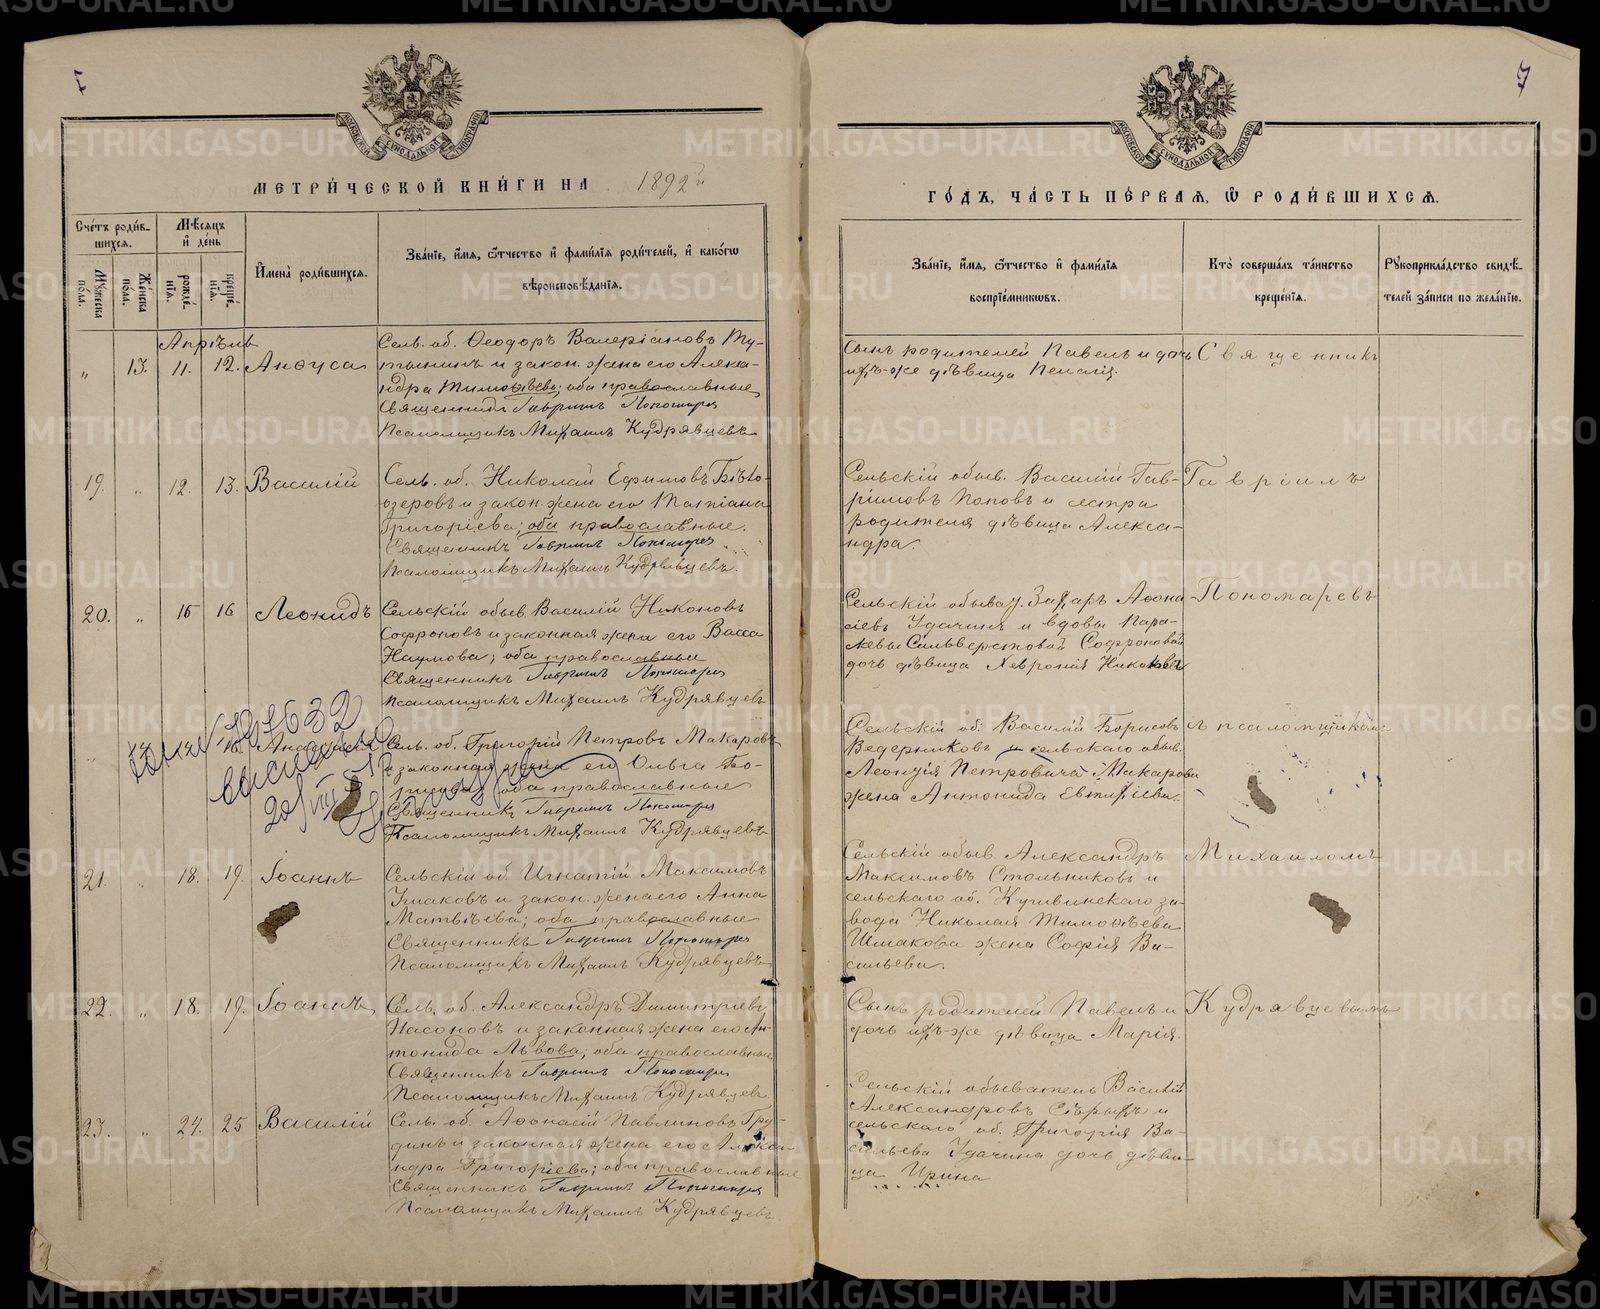 7
МЕТРИ́ЧЕСКОЙ КНИ́ГИ НА 1892й
Сче́тъ роди́в-
шихся.
Мѣ́сяцъ
и҆ де́нь
Мꙋжеска по́ла.
Же́нска по́ла.
рожде́нїѧ.
креще́нїѧ.
И҆мена̀ роди́вшихсѧ.
Зва́нїе, и҆́мѧ, ѻ҆́тчество и҆ фами́лїѧ роди́телей, и҆ како́гѡ
вѣроисповѣ́данїѧ.
Апрѣль
„ 13. 11. 12. Анѳуса
Сель. об. Ѳеодоръ Валеріановъ
и закон. жена его Алекса-
ндра Тимоѳѣева; оба православные
Священникъ Гавріилъ Пономаревъ
Псаломщикъ Михаилъ Кудрявцевъ
19. „ 12. 13. Василій
Сель. об. Николай Ефимовъ Бѣло-
озеровъ и закон. жена его Татіана
Григоріева; оба православные.
Священникъ Гавріилъ Пономаревъ
Псаломщикъ Михаилъ Кудрявцевъ.
20. „ 15 16 Леонидъ
Сельскій обыв. Василій Никоновъ
Софроновъ и законная жена его Васса
Наумова; оба православные
Священникъ Гавріилъ Пономаревъ
Псаломщикъ Михаилъ Кудрявцевъ
„ 16. Анастасія
Сель. об. Григорій Петровъ Макаровъ
и законная жена его Ольга Бо-
рисова; оба православные
Священникъ Гавріилъ Пономаревъ
Псаломщикъ Михаилъ Кудрявцевъ
21. „ 18. 19. Іоаннъ
Сельскій об. Игнатій Максимовъ
Ушаковъ и закон. жена его Анна
Матвѣева; оба православные
Священникъ Гавріилъ Пономаревъ
Псаломщикъ Михаилъ Кудрявцевъ
22. „ 18. 19. Іоаннъ
Сель. об. Александръ Димитріевъ
Насоновъ и законная жена его Ан-
тонида Львова; оба православные
Священникъ Гавріилъ Пономаревъ
Псаломщикъ Михаилъ Кудрявцевъ
23. „ 24. 25 Василій
Сель. об. Аѳонасій Павлиновъ Гру-
динъ и законная жена его Алекса-
ндра Григоріева; оба православные
Священникъ Гавріилъ Пономаревъ
Псаломщикъ Михаилъ Кудрявцевъ.
7
ГО́ДЪ, ЧА́СТЬ ПЕ́РВАЯ, Ѡ҆ РОДИ́ВШИХСЯ.
Зва́нїе, и҆́мѧ, ѻ҆́тчество и҆ фами́лїѧ
воспрїе́мникѡвъ.
Кто̀ соверша́лъ та́инство
креще́нїѧ.
Рꙋкоприкла́дство свидѣ́-
телей за́писи по жела́нїю.
Сынъ родителей Павелъ и дочь
ихъ-же дѣвица Пелагія.
Священникъ
Сельскій обыв. Василій Гав-
ріиловъ Поповъ и сестра
родителя дѣвица Алекса-
ндра.
Гавріилъ
Сельскій обыват. Захаръ Аѳона-
сіевъ Удачинъ и вдовы Пара-
скевы Сильверстовой Софроновой
дочь дѣвица Хевронія Никонова
Пономаревъ
Сельскій об. Василій Борисовъ
Ведерниковъ и сельскаго обыв.
Леонтія Петровича Макарова
жена Антонида Евтихіева.
съ псаломщикомъ
Сельскій обыв. Александръ
Максимовъ Стольниковъ и
сельскаго об. Кушвинскаго за-
вода Николая Тимоѳѣева
Шмакова жена Софія Ва-
сильева.
Михаиломъ
Сынъ родителей Павелъ и
дочь ихъ-же дѣвица Марія.
Кудрявцевымъ
Сельскій обыватель Василій
Александровъ Сѣрыхъ и
сельскаго об. Григорія Ва-
сильева Удачина дочь дѣви-
ца Ирина
METRIKI.GASO-URAL.RU